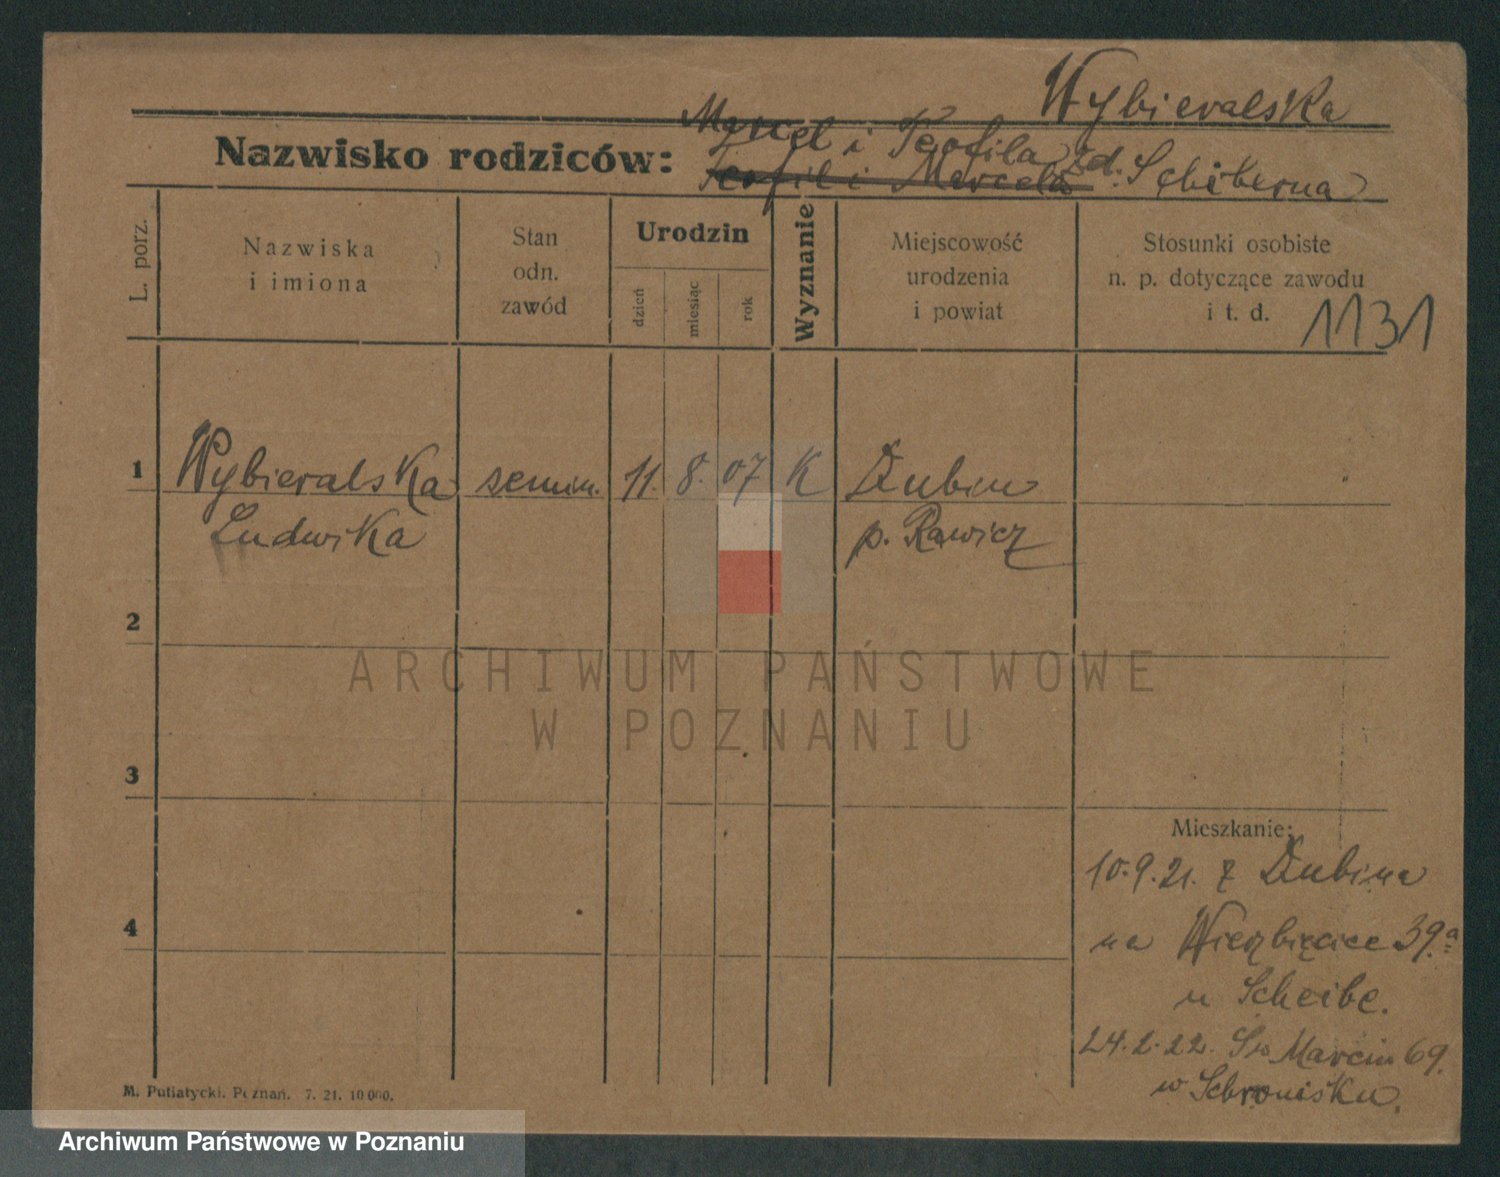 Wybieralska
Nazwisko rodziców: Marcel i Teofila zd.
Teofil i Marcela
L. porz.
Nazwiska
i imiona
Stan
odn.
zawód
Urodzin
dzień
miesiąc
rok
Wyznanie
Miejscowość
urodzenia
i powiat
Stosunki osobiste
n. p. dotyczące zawodu
i t. d.
1131
1 Wybieralska semin. 11. 8. 07 K Dubin
Ludwika p. Rawicz
2
3
4
Mieszkanie:
10.9.21. z Dubina
na Wierzbięcice 39.a
u Scheibe.
24.2.22. Św Marcin 69.
w Schronisku.
M. Putiatycki. Poznań. 7. 21. 10 000.
ARCHIWUM PAŃSTWOWE
W POZNANIU
Archiwum Państwowe w Poznaniu